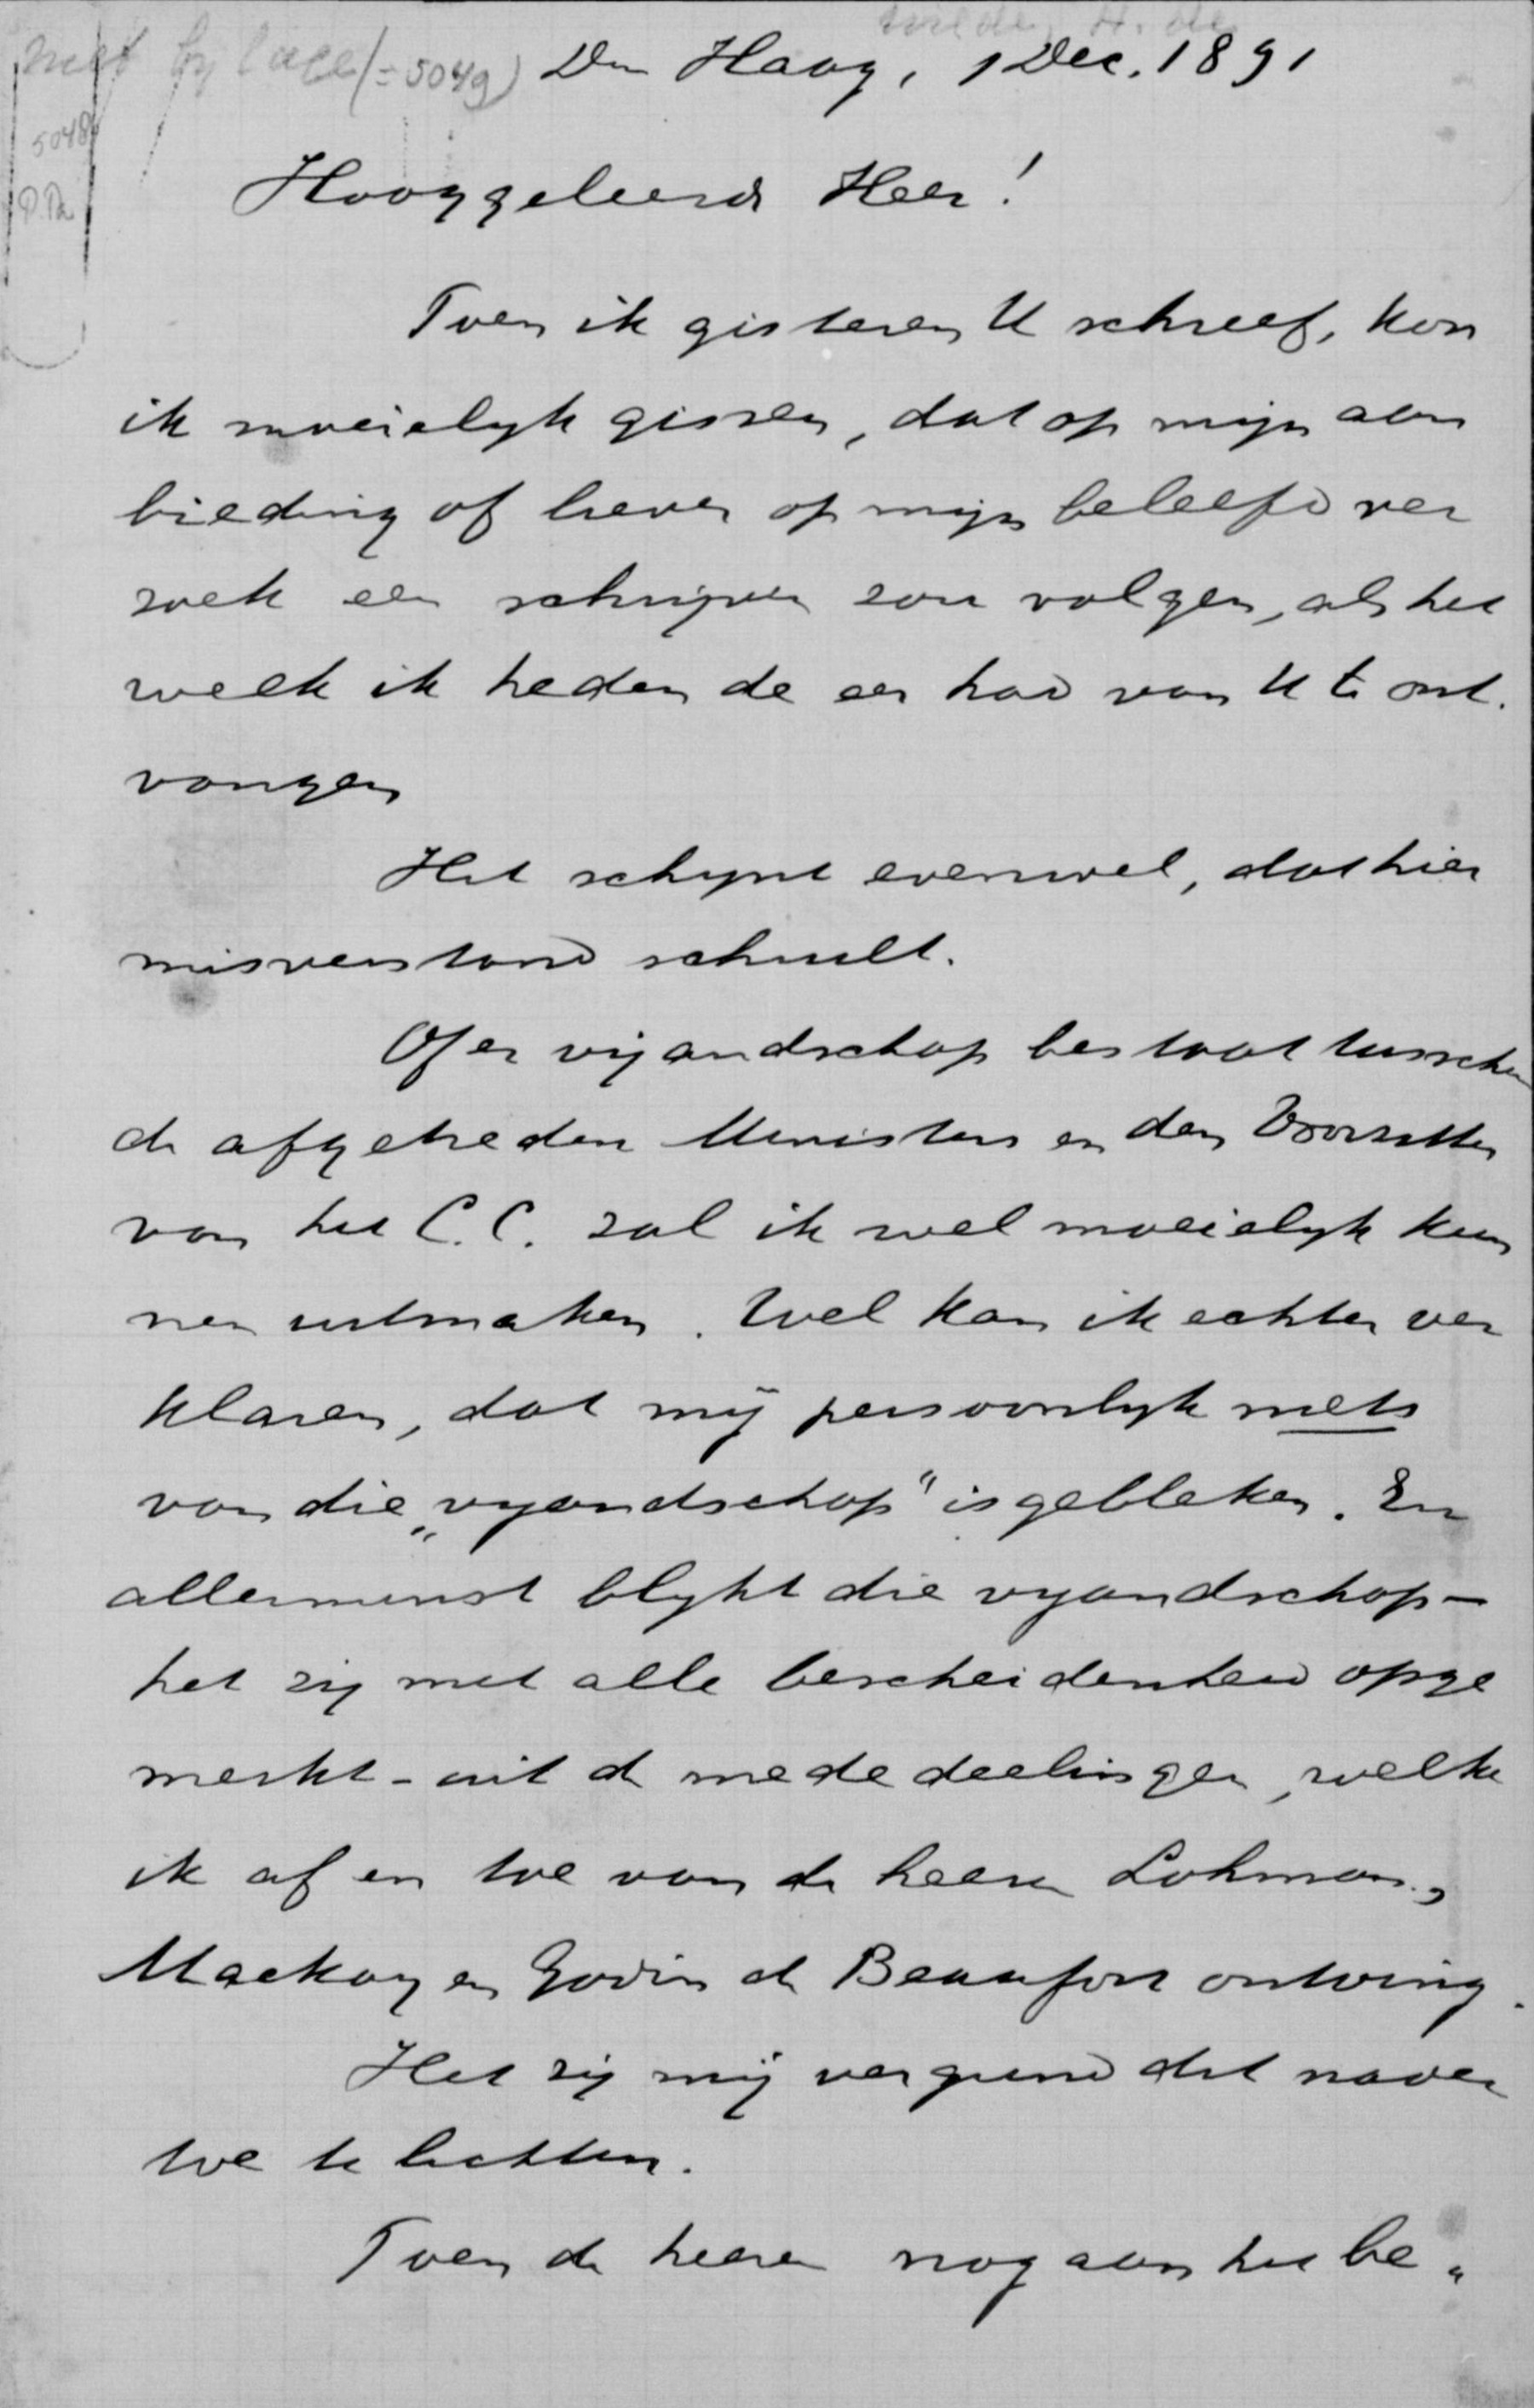 met bylage (=5049) Den Haag, 1 Dec. 1891
5048
Hooggeleerde Heer!
Toen ik gisteren U schreef, kon
ik moeielyk gissen, dat op mijn aan
bieding of liever op mijn beleefd ver
zoek een schrijven zou volgen, als het
welk ik heden de eer had van U te ont.
vangen
Het schynt evenwel, dat hier
misverstand schuilt.
Of er vijandschap bestaat tusschen
de afgetreden Ministers en den Voorzitter
van het C.C. zal ik wel moeielyk kun
nen uitmaken. Wel kan ik echter ver
klaren, dat mij persoonlyk niets
van die „vyandschap" is gebleken. En
allerminst blykt die vyandschap -
het zij met alle bescheidenheid opge
merkt - uit de mededeelingen, welke
ik af en toe van de heeren Lohman,
Mackay en Godin de Beaufort ontving.
Het zij mij vergund dit nader
toe te lichten.
Toen de heeren nog aan het be„